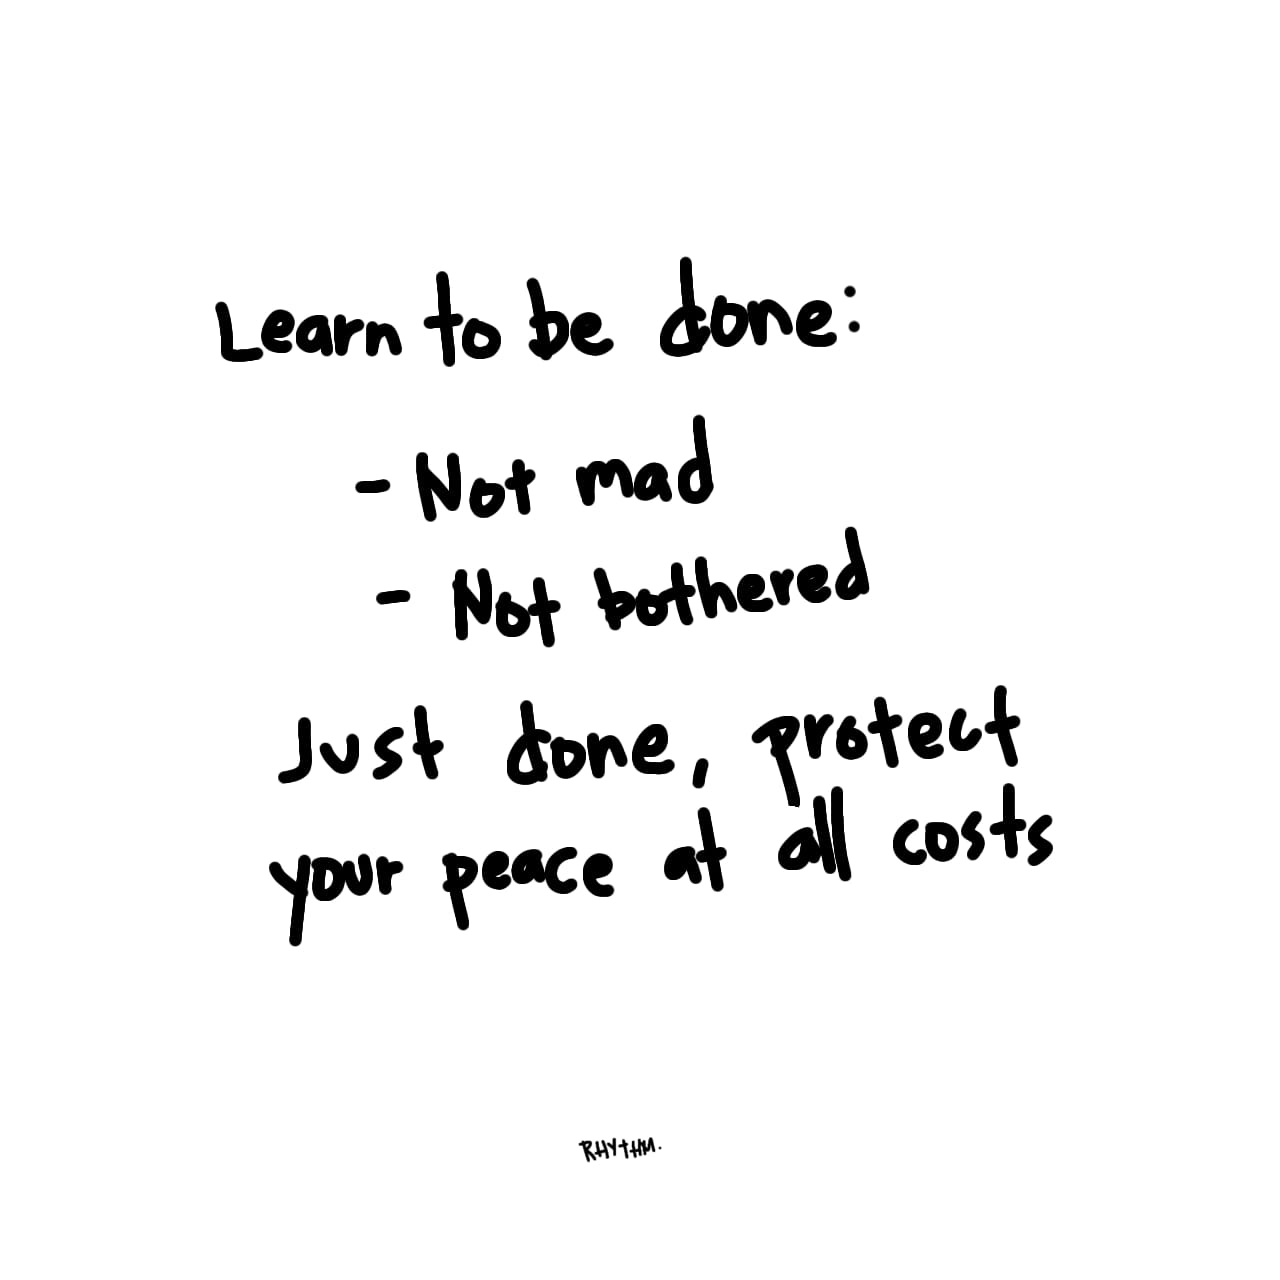 Learn to be done:
- Not mad
- Not bothered
Just done, protect
your peace at all costs
RHYTHM.